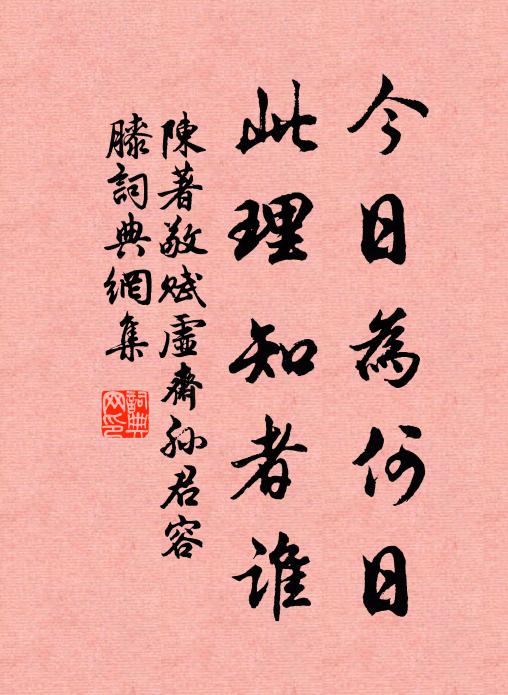 今日為何日
此理知者誰
陳著敬賦虛齋孫君容
膝詞典網集
詞典網印